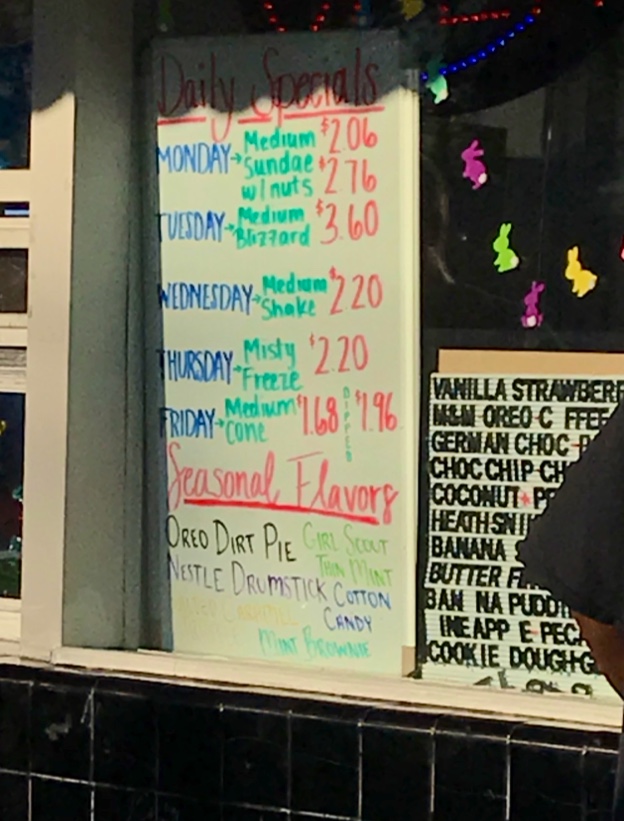 Daily Specials
MONDAY→ Medium $2.06
Sundae $2.76
w/nuts
TUESDAY→ Medium Blizzard $3.60
WEDNESDAY→ Medium Shake $2.20
THURSDAY→ Misty Freeze $2.20
FRIDAY→ Medium Cone $1.68 DIPPED $1.96
Seasonal Flavors
OREO DIRT PIE GIRL SCOUT
THIN MINT
NESTLE DRUMSTICK COTTON
CANDY
MINT BROWNIE
VANILLA STRAWBERR
M&M OREO C FFEE
GERMAN CHOC
CHOC CHIP CH
COCONUT
HEATH SNI
BANANA
BUTTER F
BAN NA PUDDI
INEAPP E PEC
COOKIE DOUGH G